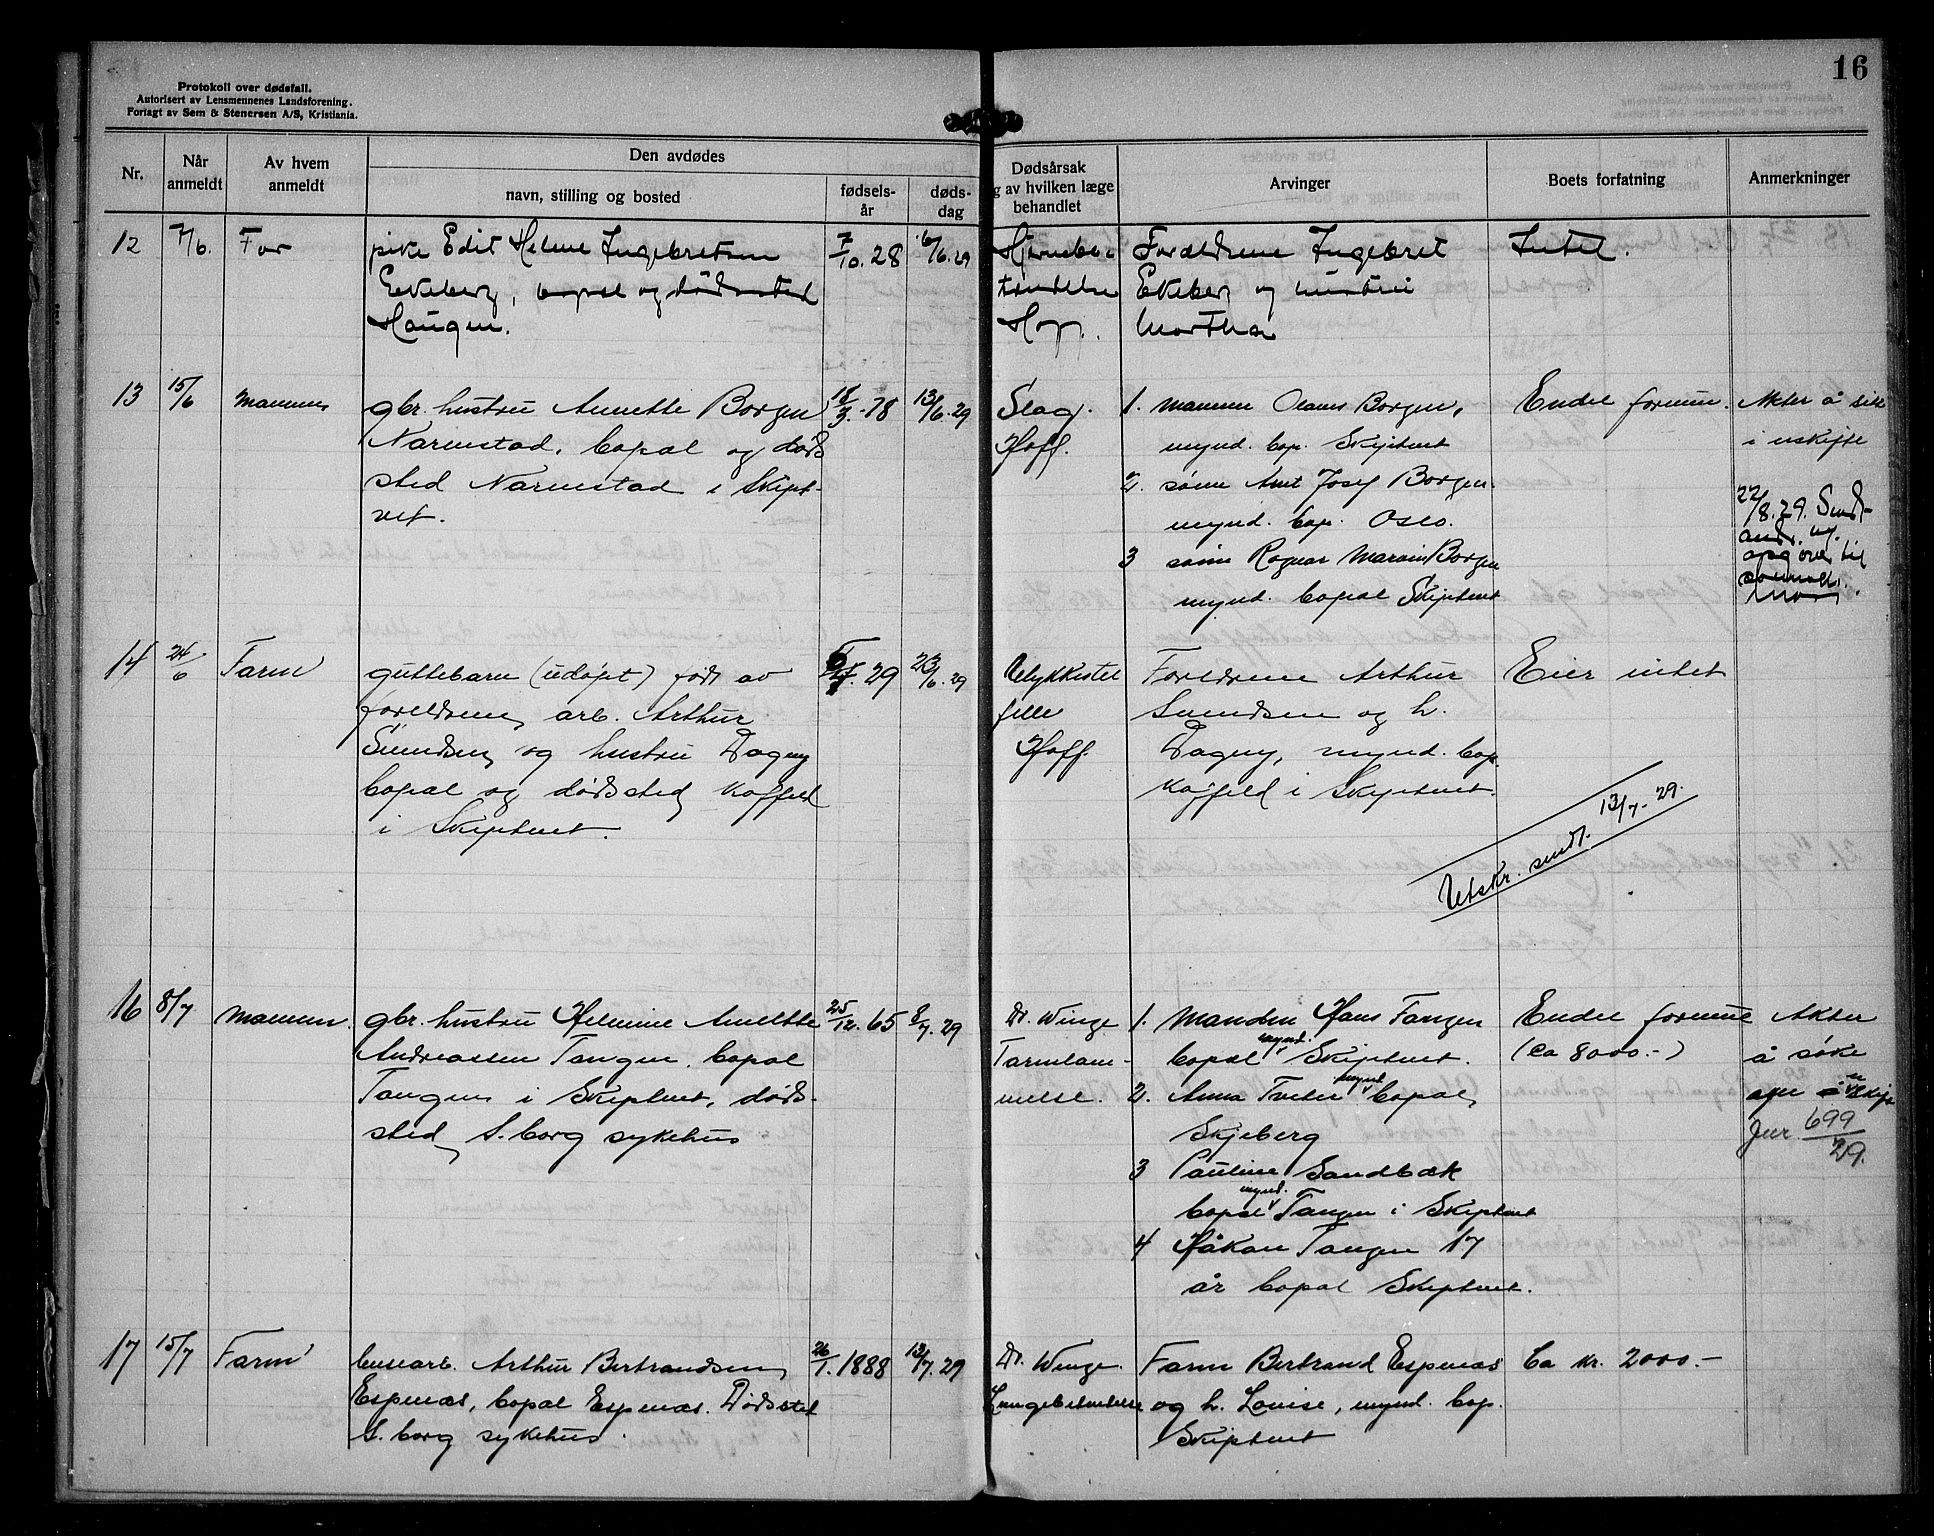 16
Protokoll over dødsfall.
Autorisert av Lensmennenes Landsforening.
Forlagt av Sem & Stenersen A/S, Kristiania.
Nr.
Når anmeldt
Av hvem anmeldt
Den avdødes
navn, stilling og bosted
fødsels-år
døds-dag
Dødsårsak
g av hvilken læge
behandlet
Arvinger
Boets forfatning
Anmerkninger
12 7/6. Far pike Edit Helene Ingebretsen 7/10. 28 6/6. 29
Ekeberg, bopæl og dødssted
Haugen.
Hjernebe-
tændelse
Forældrene Ingebret
Ekeberg og hustru
Martha
Intet.
13 15/6 Mannen gbr. hustru Annette Borgen 18/3.-78 13/6.29
Narvestad, bopæl og døds
sted Narvestad i Skipt-
vet.
Slag.
Hoff.
1. Mannen Olaves Borgen,
mynd. bop. Skiptvet
2. sønn Arnt Josef Borgen
mynd. bop. Oslo.
3 sønn Ragnar Marvin Borgen
mynd. bopæl Skiptvet
Endel formue.
Akter å sitte
i uskifte
22/8.29. Sendt
14 24/6 Farm guttebarn (udøpt) født av 29 23/6.29
foreldrene, arb. Arthur
Svendsen og hustru Dagny
bopæl og dødssted Koffeld
i Skiptvet.
Ulykkestil
felle
Hoff.
Foreldrene Arthur
Svendsen og h.
Dagny, mynd. bop.
Koffeld i Skiptvet.
Eier intet
Utskr. sendt. 13/7-29.
16 8/7 Mannen. gbr. hustru Helmine Anette 25/12. 65 29
Andreassen Tangen, bopæl
Tangen i Skiptvet, døds-
sted S.borg sykehus
Dr. Winge
Tarmlam-
melse.
1. Manden Hans Tangen
bopæl mynd. Skiptvet.
2. Anna Tveter mynd bopæl
Skjeberg
3 Pauline Sandbæk
bopæl mynd. Tangen i Skiptvet
4 Håkon Tangen 17
år bopæl Skiptvet.
Endel formue
(ca 8000.-)
Akter
å søke
Jnr 699/29.
17 15/7 Farm Arthur Bertrandsen 26/1.1888 13/7.29
Espenæs, bopæl Espenæs. Dødssted
S.borg sykehus.
Dr. Winge.
Lungebetendelse
Farm Bertrand Espenæs
og h. Lovise, mynd. bop.
Skiptvet
Ca kr. 2000.-